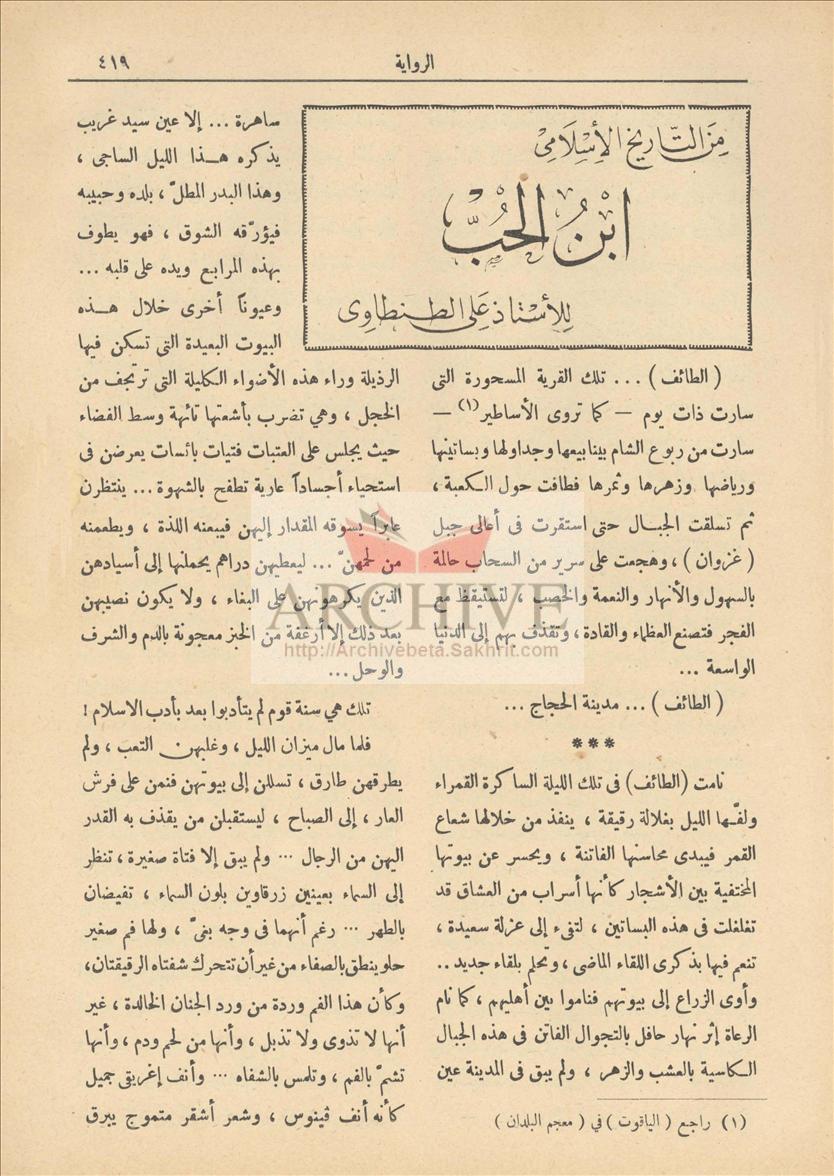 ٤١٩
الرواية
مِنَ التَّاريخ الأِسْلَامِى
ابْنُ الحُبّ
لِلأُسْتاذ عَلى الطنطاوى
( الطائف ) ... تلك القرية المسحورة التى
سارت ذات يوم — كما تروى الأساطير (١) —
سارت من ربوع الشام بينابيعها وجداولها وبساتينها
ورياضها وزهرها وثمرها فطافت حول الكعبة ،
ثم تسلقت الجبال حتى استقرت فى أعالى جبل
( غزوان ) ، وهجعت على سرير من السحاب حالمة
بالسهول والأنهار والنعمة والخصب ، لتستيقظ مع
الفجر فتصنع العظماء والقادة ، وتقذف بهم إلى الدنيا
الواسعة ...
( الطائف ) ... مدينة الحجاج ...
***
نامت (الطائف) فى تلك الليلة الساكرة القمراء
ولفّها الليل بغلالة رقيقة ، ينفذ من خلالها شعاع
القمر فيبدى محاسنها الفاتنة ، ويحسر عن بيوتها
المختفية بين الأشجار كأنها أسراب من العشاق قد
تغلغلت فى هذه البساتين ، لتفىء إلى عزلة سعيدة ،
تنعم فيها بذكرى اللقاء الماضى ، وتحلم بلقاء جديد ..
وأوى الزراع إلى بيوتهم فناموا بين أهليهم ، كما نام
الرعاة إثر نهار حافل بالتجوال الفاتن فى هذه الجبال
الكاسية بالعشب والزهر ، ولم يبق فى المدينة عين
(١) راجع ( الياقوت ) في ( معجم البلدان )
ساهرة ... إلا عين سيد غريب
يذكره هذا الليل الساجى ،
وهذا البدر المطلّ ، بلده وحبيبه
فيؤرّقه الشوق ، فهو يطوف
بهذه المرابع ويده على قلبه ...
وعيوناً أخرى خلال هذه
البيوت البعيدة التى تسكن فيها
الرذيلة وراء هذه الأضواء الكليلة التى ترتجف من
الخجل ، وهي تضرب بأشعتها تائهة وسط الفضاء
حيث يجلس على العتبات فتيات بائسات يعرضن فى
استحياء أجساداً عارية تطفح بالشهوة ... ينتظرن
عابراً يسوقه المقدار إليهن فيبعنه اللذة ، ويطعمنه
من لحمهنّ ... ليعطيهن دراهم يحملنها إلى أسيادهن
الذين يكرهونهن على البغاء ، ولا يكون نصيبهن
بعد ذلك إلا أرغفة من الخبز معجونة بالدم والشرف
والوحل ...
تلك هي سنة قوم لم يتأدبوا بعد بأدب الاسلام !
فلما مال ميزان الليل ، وغلبهن التعب ، ولم
يطرقهن طارق ، تسللن إلى بيوتهن فنمن على فرش
العار ، إلى الصباح ، ليستقبلن من يقذف به القدر
اليهن من الرجال ... ولم يبق إلا فتاة صغيرة ، تنظر
إلى السماء بعينين زرقاوين بلون السماء ، تفيضان
بالطهر ... رغم أنهما فى وجه بغىّ ، ولها فم صغير
حلو ينطق بالصفاء من غير أن تتحرك شفتاه الرقيقتان ،
وكأن هذا الفم وردة من ورد الجنان الخالدة ، غير
أنها لا تذوى ولا تذبل ، وأنها من لحم ودم ، وأنها
تشمّ بالفم ، وتلمس بالشفاه ... وأنف إغريقى جميل
كأنه أنف ڤينوس ، وشعر أشقر متموج يبرق
ARCHIVE
http://Archivebeta.Sakhrit.com